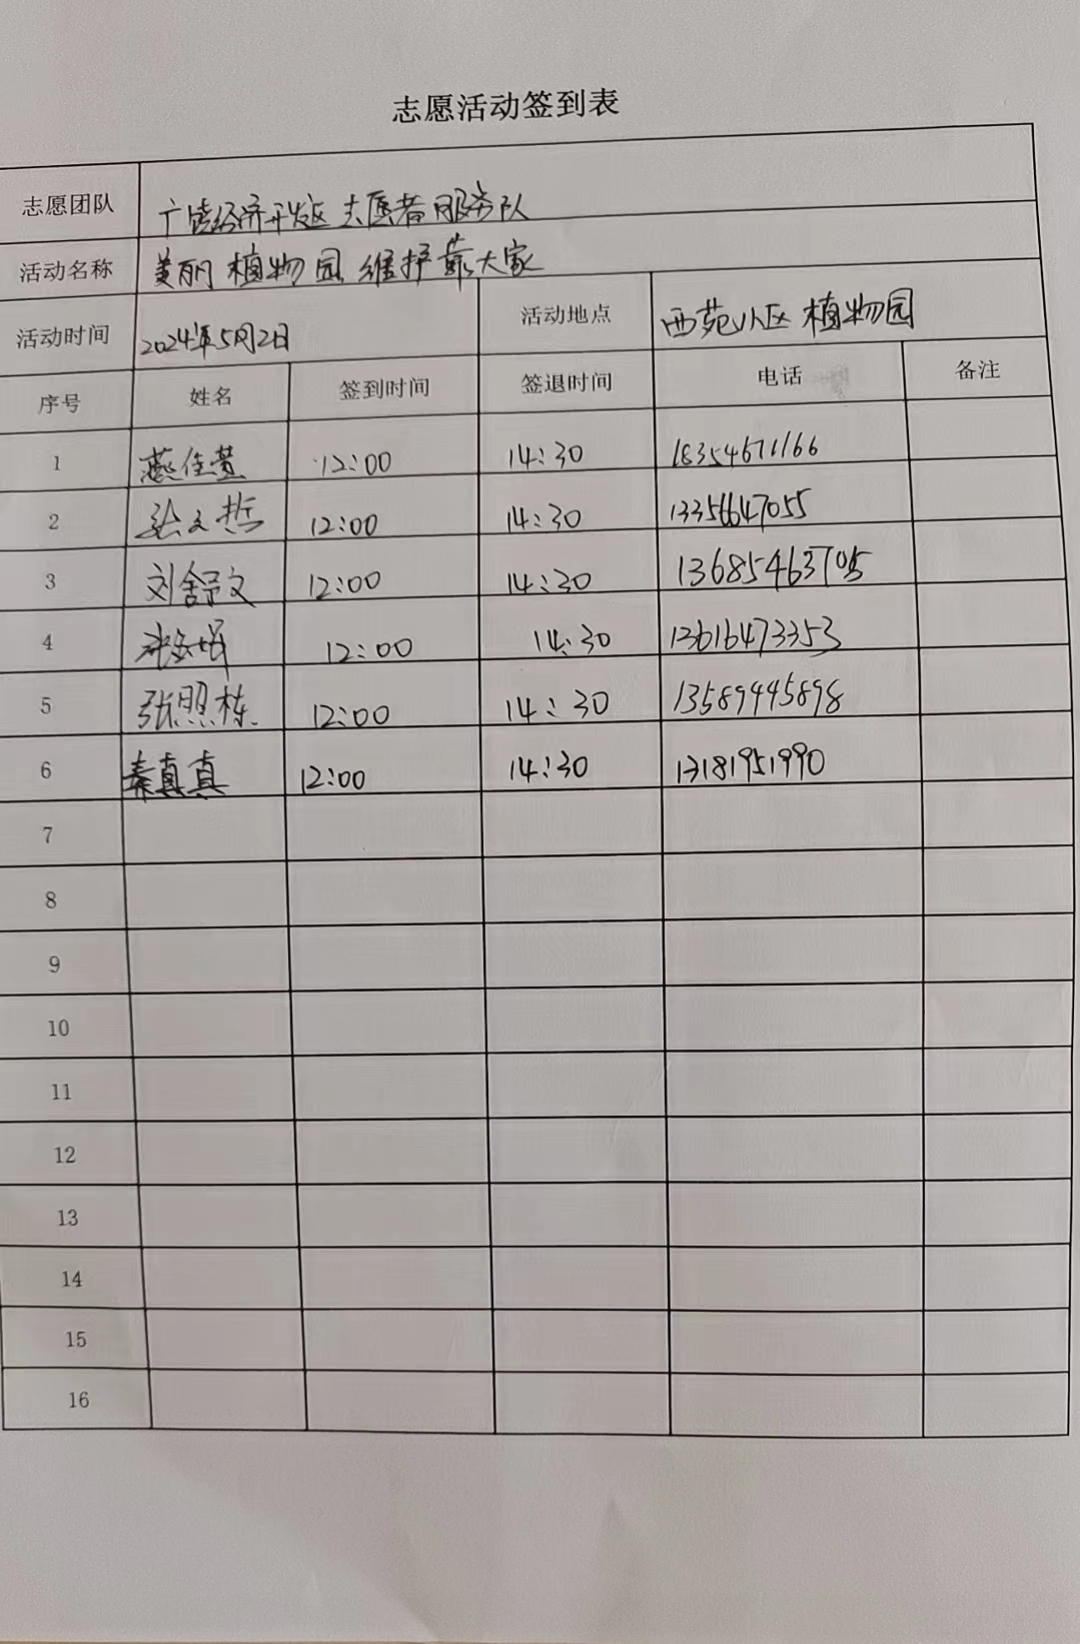 志愿活动签到表
志愿团队 广饶经济开发区志愿者服务队
活动名称 美丽植物园 维护靠大家
活动时间 2024年5月2日 活动地点 西苑小区 植物园
序号 姓名 签到时间 签退时间 电话 备注
1 燕佳萱 12:00 14:30 18354671166
2 张文哲 12:00 14:30 13356647055
3 刘舒文 12:00 14:30 13685463705
4 12:00 14:30 13616473353
5 张照栋 12:00 14:30 13589445898
6 秦真真 12:00 14:30 13181951990
7
8
9
10
11
12
13
14
15
16